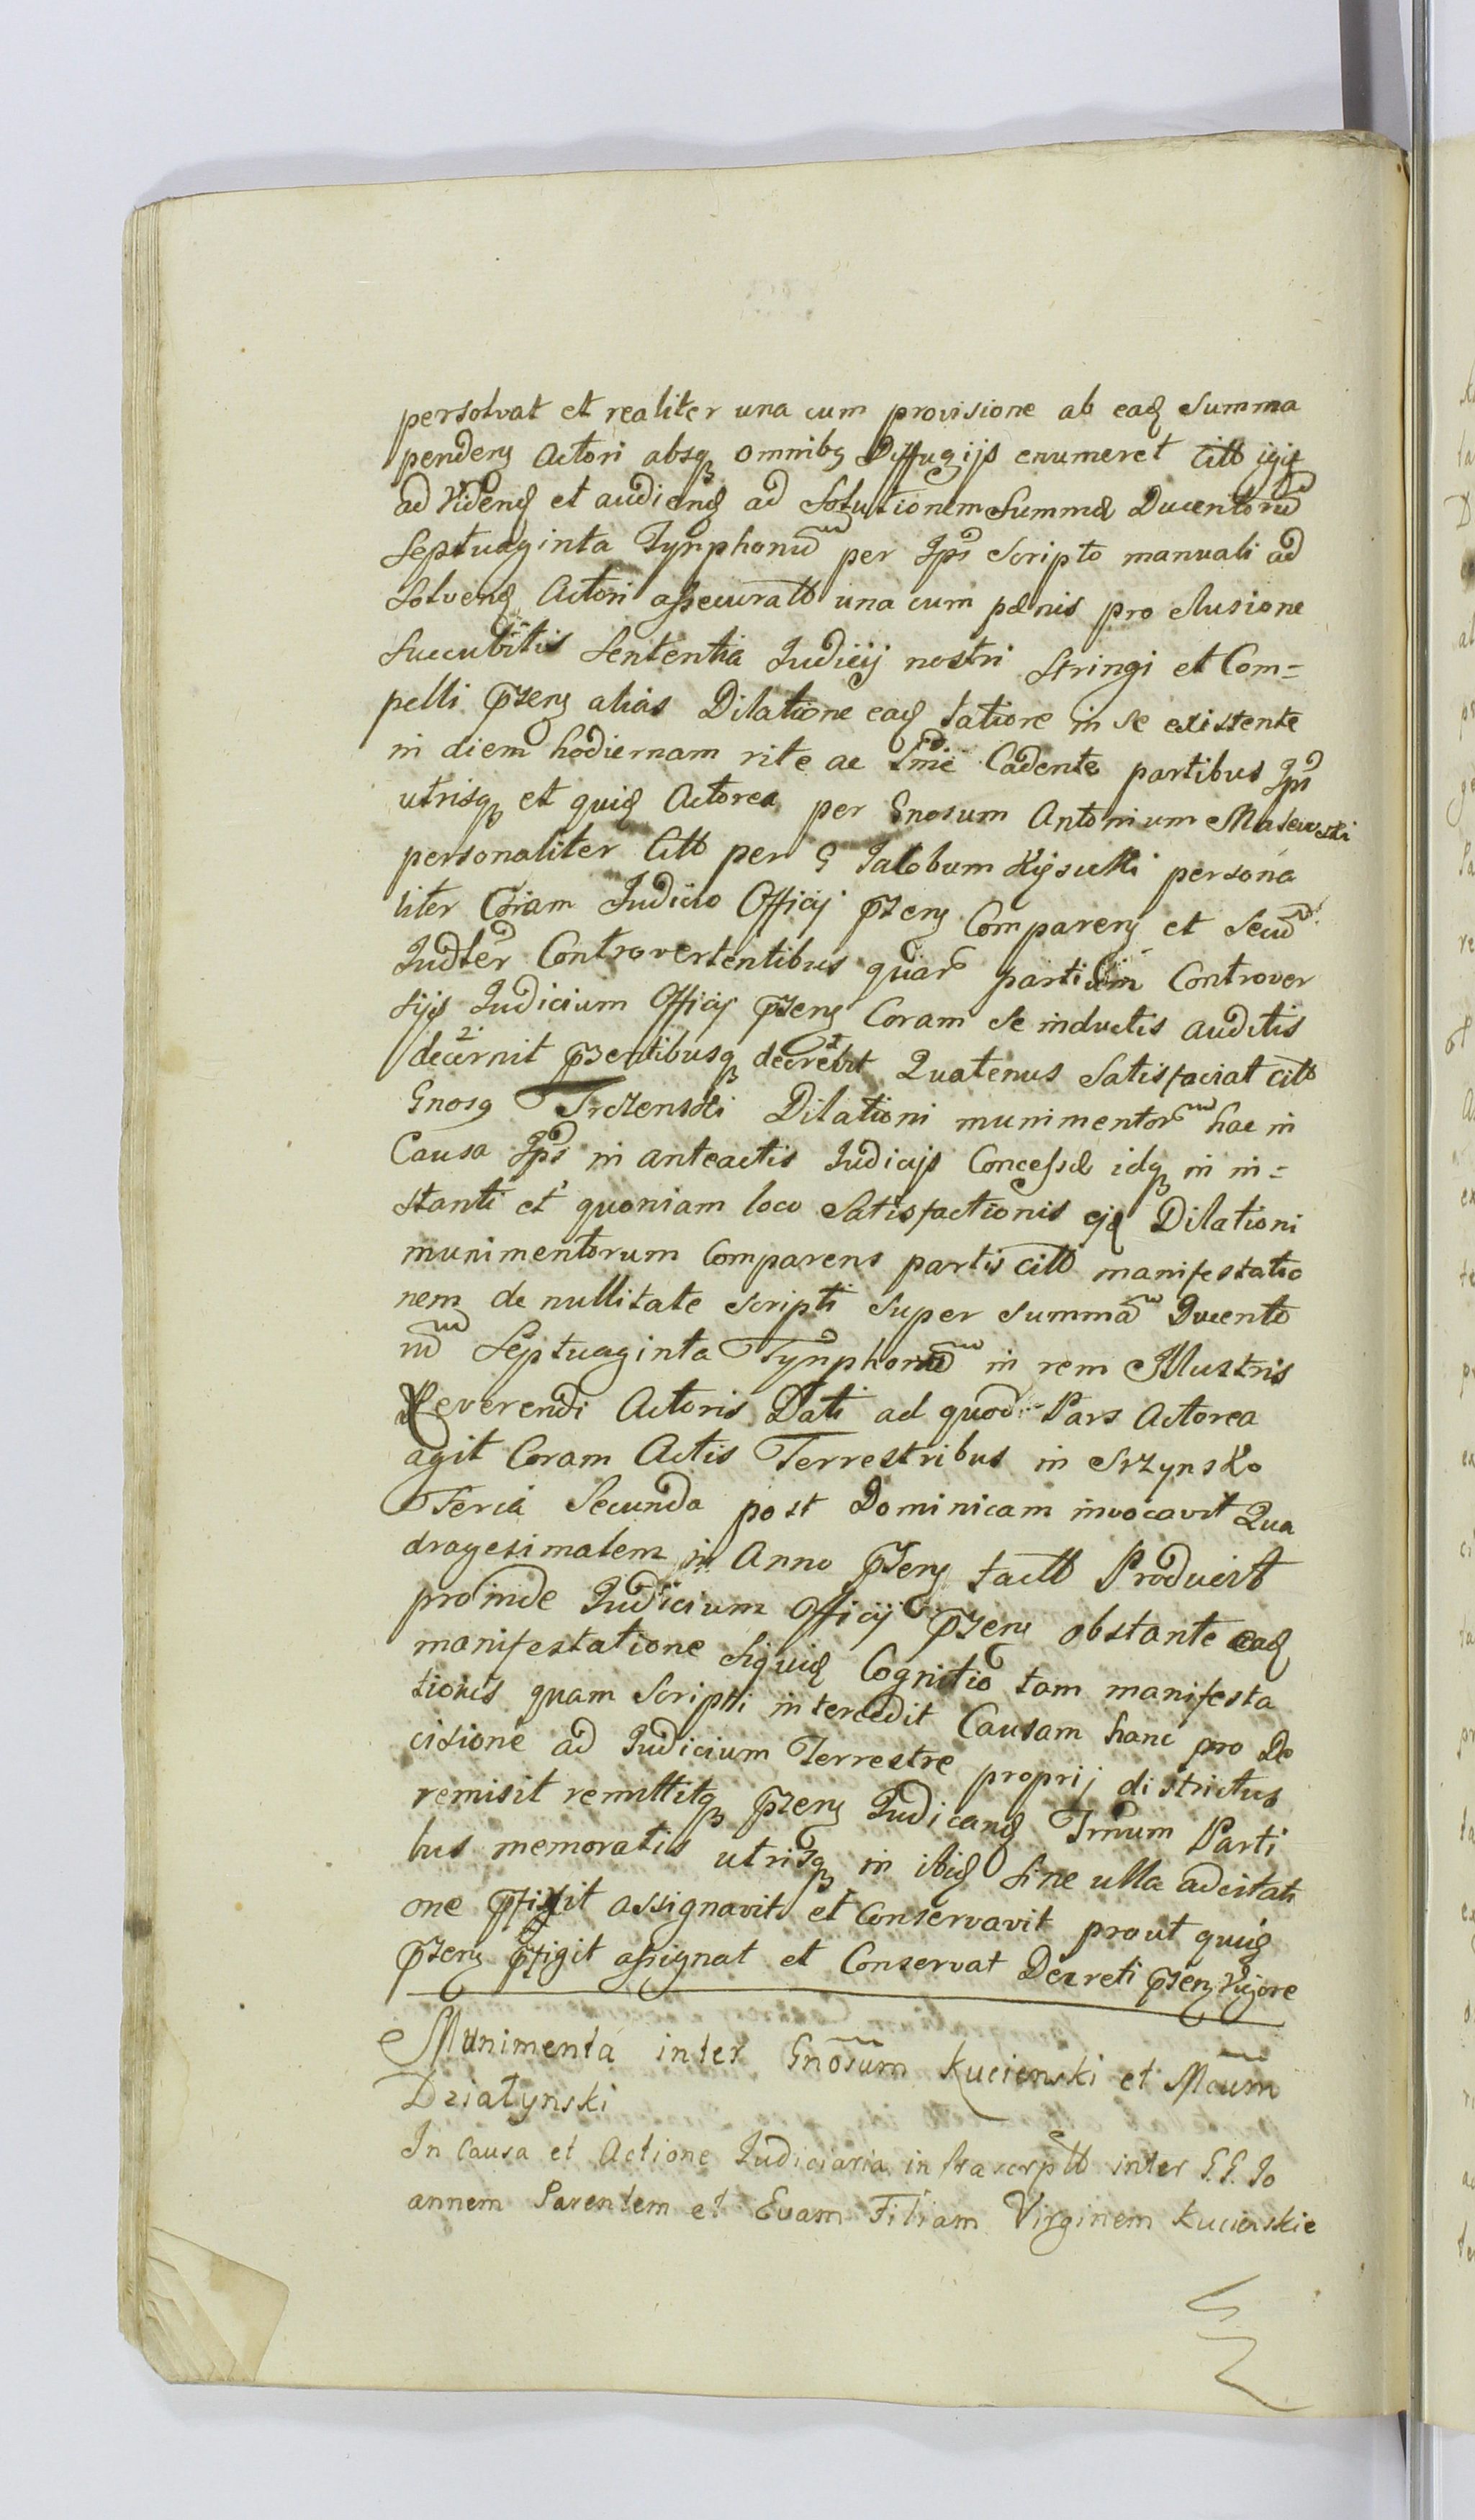 persolvat et realiter una cum provisione ab eaq Summa
pendenς Actori absqꝫ omnibꝫ Diffugijs enumeret Citt igit
ad Videnq et audienq ad Solutionem Summæ Ducentorũ
Septuaginta Tynphonũ per Ips̃ Scripto manuali ad
Solvenq Actori assecuratt una cum pænis pro elusione
Succubitis Sententia Judicij nostri Stringi et Com=
pelli p̃zenς alias Dilatione eaq latiore in se existente
in diem hodiernam rite ac lm̃e Cadente partibus Ips̃
utrisqꝫ et quiq Actorea per Gnosum Antonium Malewski
personaliter Citt per G Jacobum Kijsutki persona
liter Coram Judicio Officij p̃zenς Comparenς et Secũ
Judl̃er Controvertentibus quar̃ partium Controver
sijs Judicium Officij p̃zenς Coram se inductis auditis
decernit p̃zentibusqꝫ decrevit Quatenus Satisfaciat Citt
Gnosꝫ Trczenski Dilationi munimentor̃ hac in
Causa Ips̃ in anteactis Judicijs Concessæ idqꝫ in in=
stanti et quoniam loco Satisfactionis ejq Dilationi
munimentorum Comparens partis Citt manifestatio
nem de nullitate Scripti Super Summã Ducento
rũ Septuaginta Tynphonũ in rem Illustris
Reverendi Actoris Dati ad quod Pars Actorea
agit Coram Actis Terrestribus in Srzynsko
Feria Secunda post Dominicam invocavit Qua
dragesimalem in Anno p̃zenς factt Producit
proinde Judicium Officij p̃zenς obstante eaq
manifestatione Siquiq Cognitio tam manifesta
tionis quam Scripti intercedit Causam hanc pro De
cisione ad Judicium Terrestre proprij districtus
remisit remittitqꝫ p̃zenς Judicanq Trm̃um Parti
bus memoratis utrisqꝫ in ibiq Sine ulla adcitati
one p̃fixit assignavit et Conservavit prout quiq
p̃zenς p̃figit assignat et Conservat Decreti p̃zenς Vigore
Munimenta inter Gnõsum Kucienski et Mcum̃
Dziatynski
In Causa et Actione Judiciaria infrascriptt inter G.G. Jo
annem Parentem et Evam Filiam Virginem Kucienskie